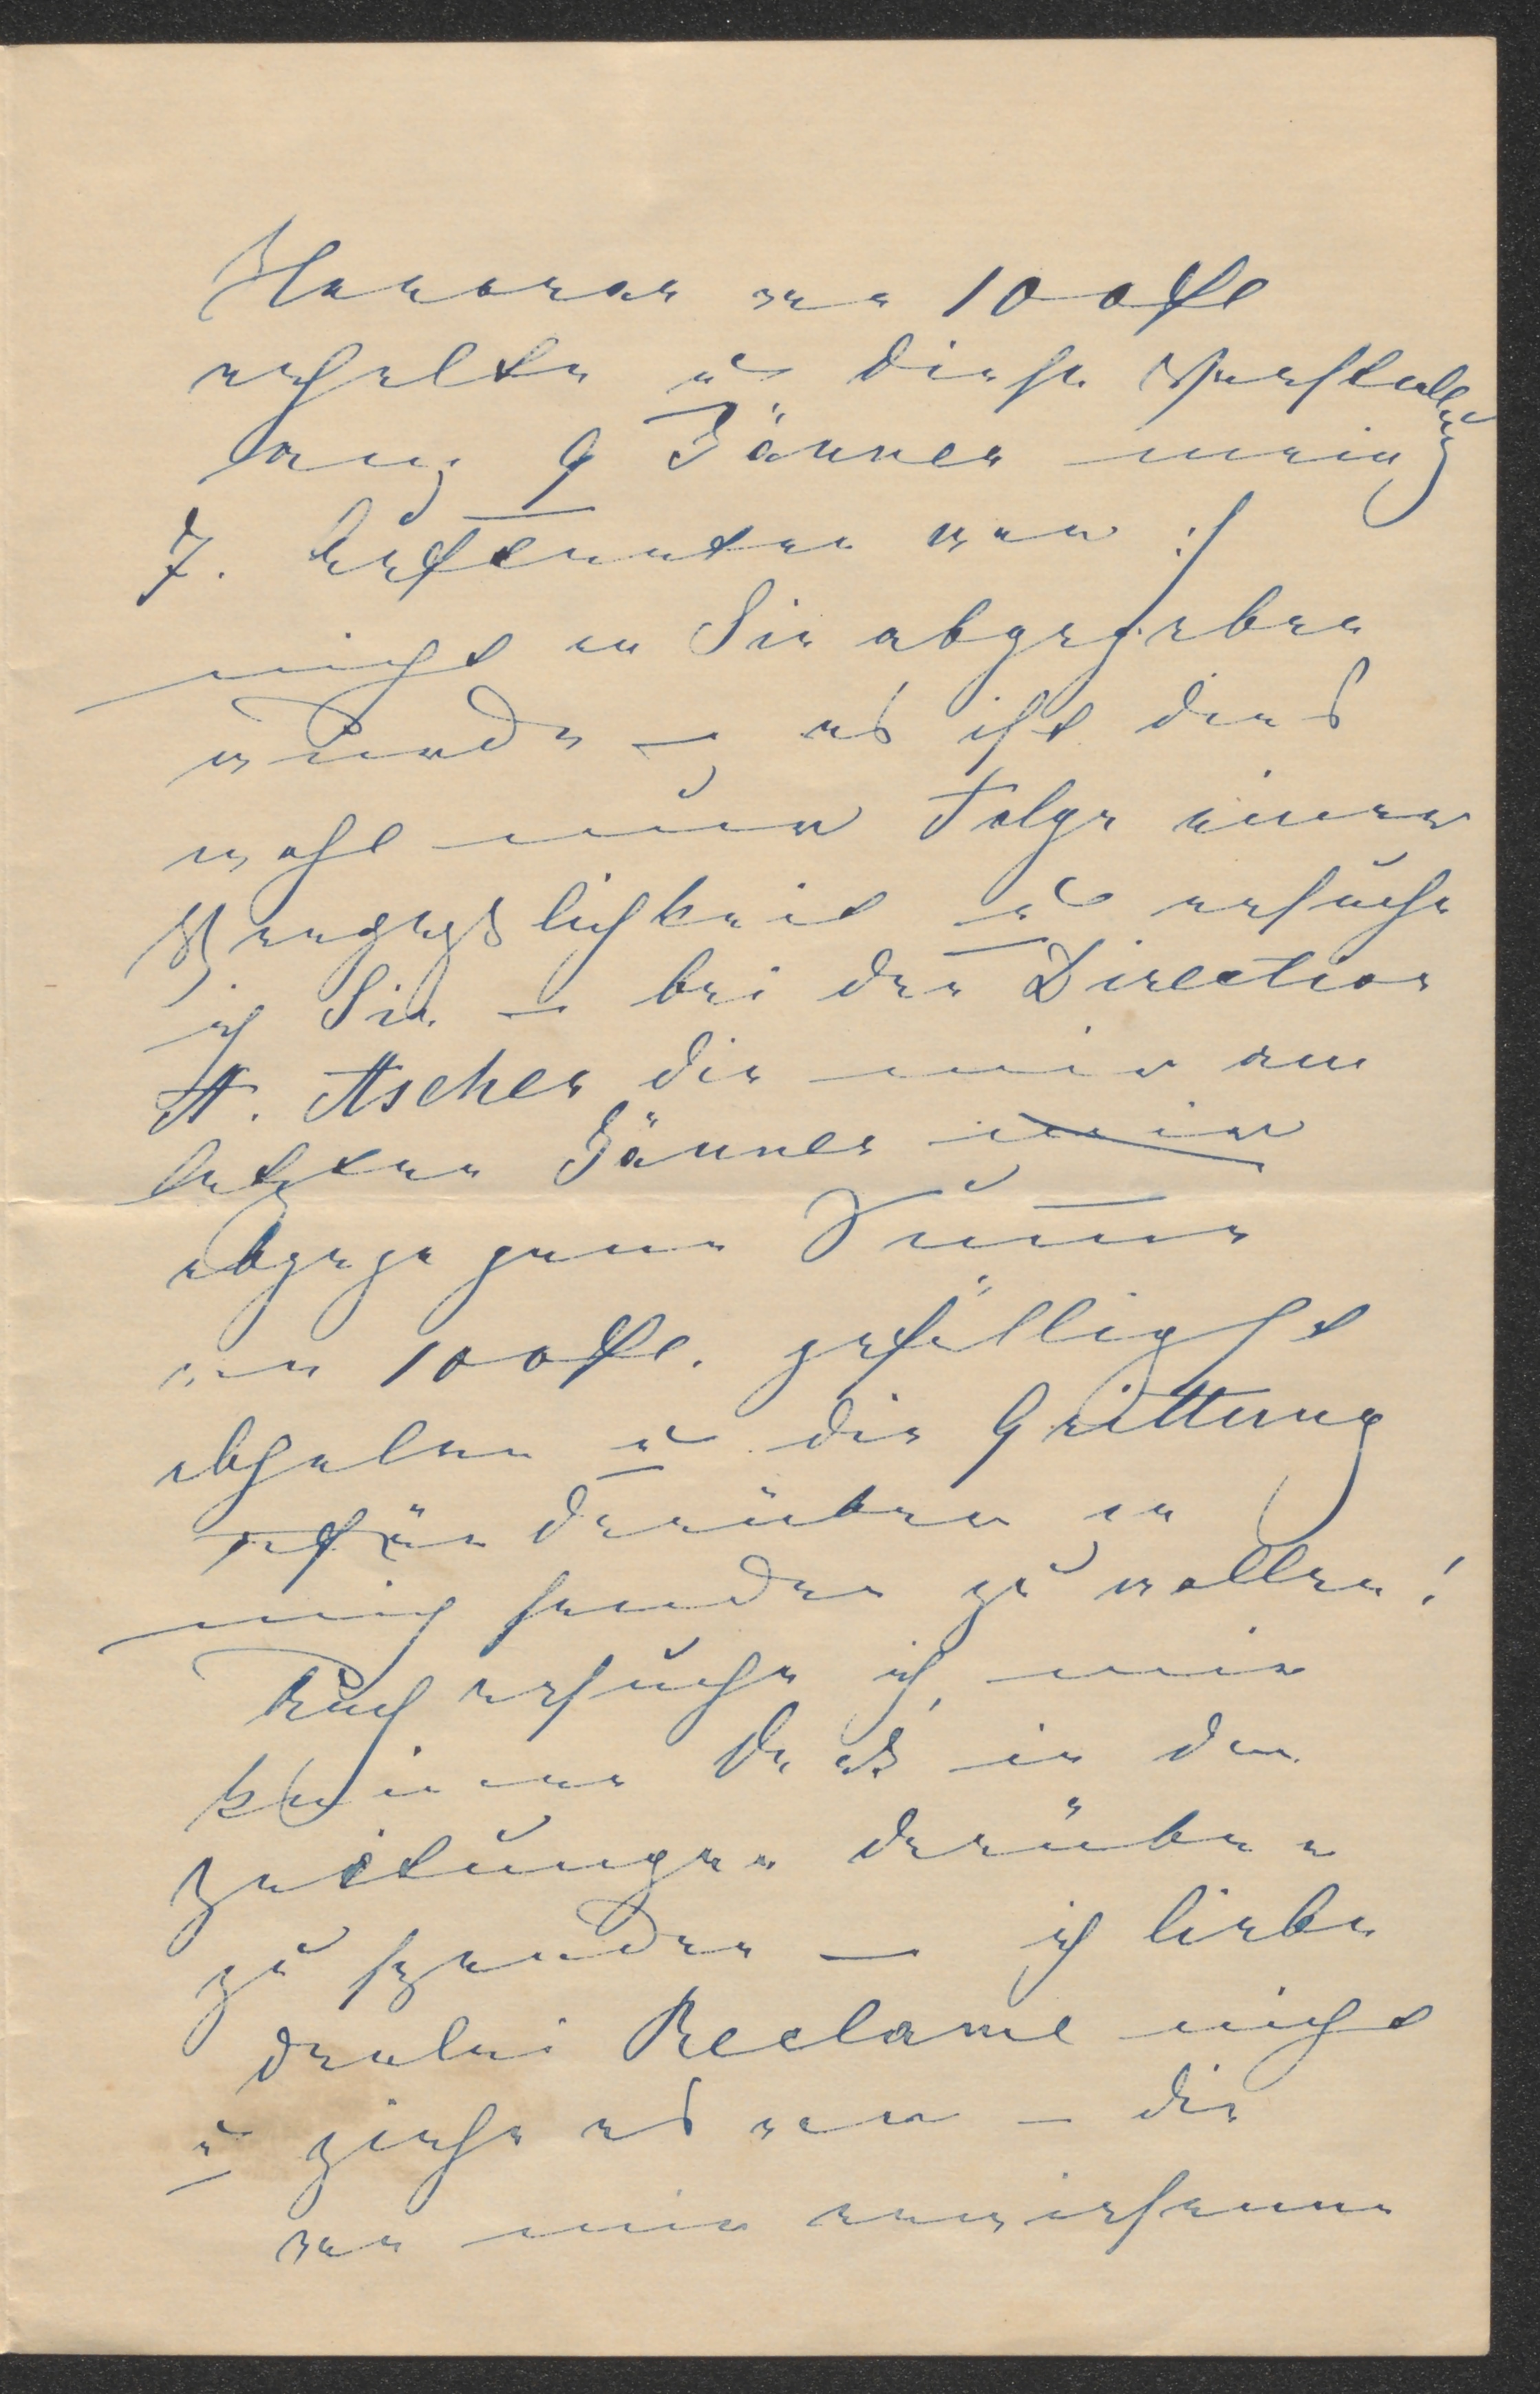 Honorar von 100 fl
erhalte u diese Vorstellung
am 9 Jänner mein
7. Auftreten war :/
nicht an Sie abgegeben
wurde – es ist dies
wohl nur Folge einer
Vergeßlichkeit u ersuche
ich Sie – bei der Direction
A. Ascher die mir am
letzten Jänner mir
abgezogene Summe
von 100 fl. gefälligst
abholen u die Quittung
darüber an
mich senden zu wollen!
Auch ersuche ich, mir
keinen Dank in den
Zeitungen darüber
zu spenden – ich liebe
derlei Reclame nicht
u ziehe es vor – die
von mir erwiesene